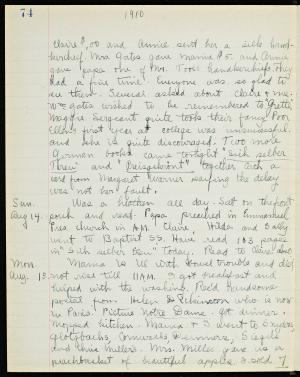 74
1910
Claire P.00 and Annie sent her a silk hand-
kerchief. Mrs Gates gave Mama P.o. and Annie
gave papa one of Mr. Toots' handkerchiefs. They
had a fine time. Everyone was so glad to
see them. Several asked about Claire & me.
Mrs Gates wished to be remembered to
Sergeant quite took their fancy. Poor
Ellen's first year at college was unsuccessful
and she is quite discouraged. Two more
German books came tonight "sich selber
treu" and together with a
card from Margaret Warner saying the delay
was not her fault.
Sun. Was a hot one all day. Sat on the front
Aug 14. porch and read. Papa preached in Immanuel
Pres church in A.M. Claire, Hilda and Sally
went to Baptist S.S. Have read 103 pages
in "Sich selber treu" today. Read to
Mon. Mama is ill with bowel trouble and did
Aug. 15. not rise till 11 A.M. I got breakfast and
helped with the washing. Recd handsome
postal from Helen Robinson who is now
in Paris. Picture Notre Dame. Got dinner.
Mopped kitchen. Mama & I went to
and Miss Millers. Mrs. Miller gave us a
of beautiful apples. I sold 7